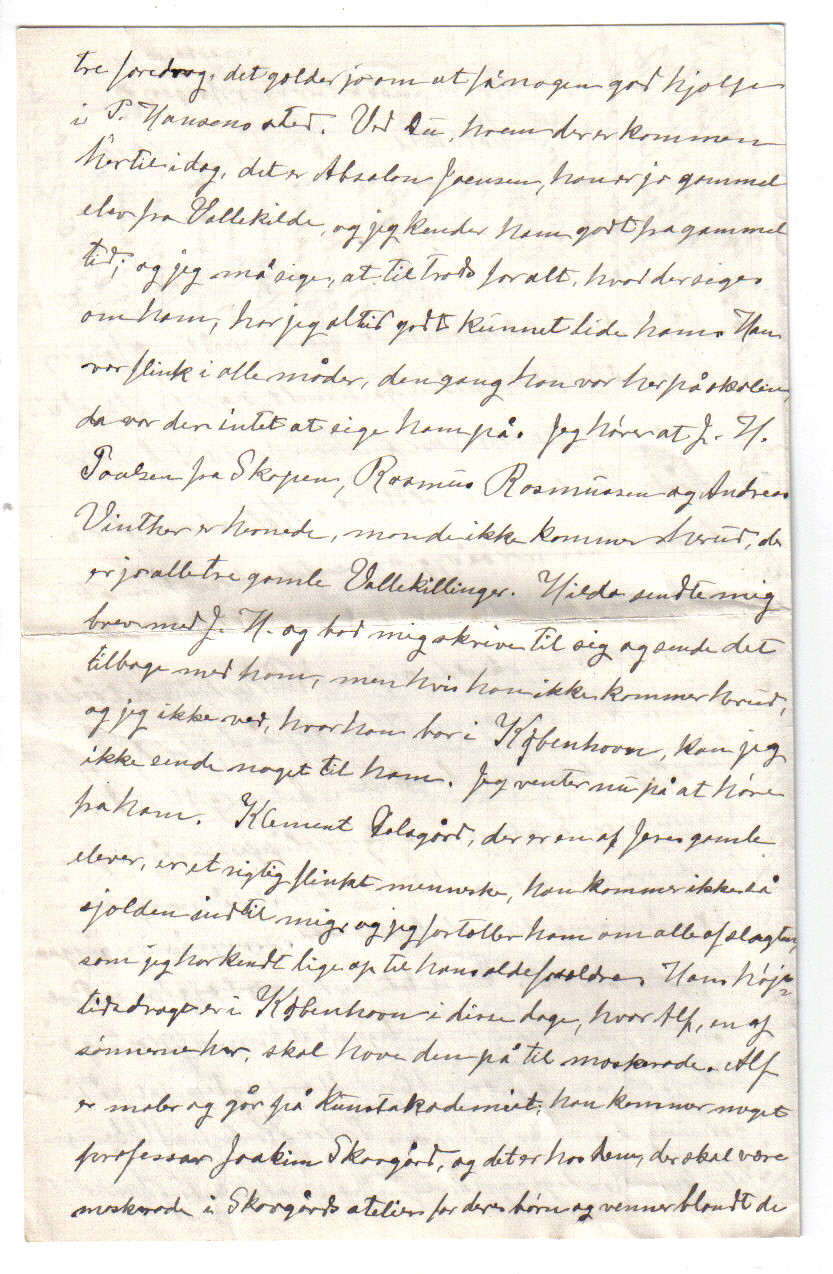 tre foredrag, det gælder jo om at få nogen god hjælp
i P. Hansens sted. Ved Du, hvem der er kommen
hertil i dag, det er Absalon Joensen, han er jo gammel
elev fra Vallekilde, og jeg kender ham godt fra gammel
tid; og jeg må sige, at til trods for alt, hvad der siges
om ham, har jeg altid godt kunnet lide ham. Han
var flink i alle måder, den gang han var her på skolen,
da var der intet at sige ham på. Jeg hører at J. H.
Poulsen fra Skopen, Rasmus Rasmussen og Andreas
Vinther er hernede, mon de ikke kommer herud, de
er jo alle tre gamle Vallekillinger. Hilda sendte mig
brev med J. H. og bad mig skrive til sig og sende det
tilbage med ham, men hvis han ikke kommer herud,
og jeg ikke ved, hvor han bor i København, kan jeg
ikke sende noget til ham. Jeg venter nu på at høre
fra ham. Klement Dalsgård, der er en af Jeres gamle
elever, er et rigtig flinkt menneske, han kommer ikke så
sjælden ind til mig, og jeg fortæller ham om alle af slægten,
som jeg har kendt lige op til hans oldeforældre. Hans høj-
tidsdragt er i København i disse dage, hvor Alf, en af
sønnerne her, skal have den på til maskerade. Alf
er maler og går på kunstakademiet; han kommer noget
professor Joakim Skovgård, og det er hos dem, der skal være
maskerade i Skovgårds atelier for deres børn og venner blandt de